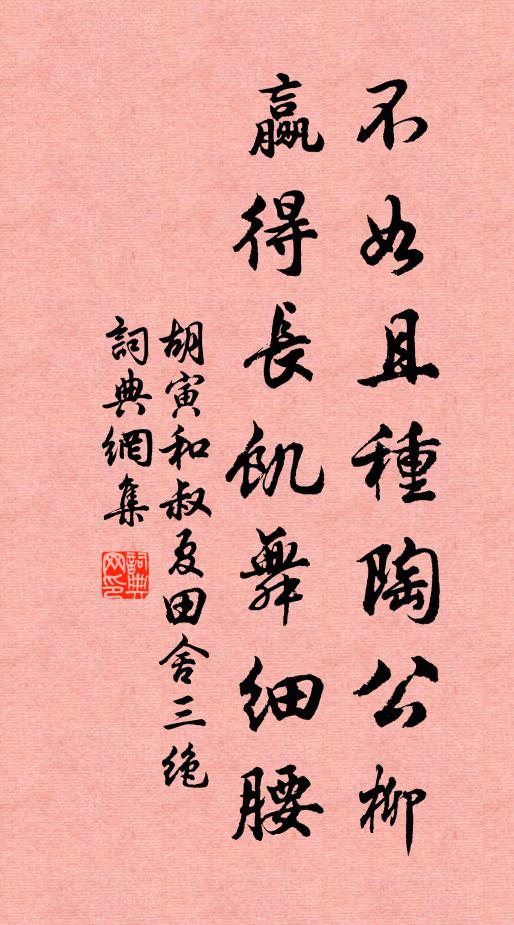 不如且種陶公柳
贏得長飢舞細腰
胡寅和叔夏田舍三絶
詞典網集
詞典網印